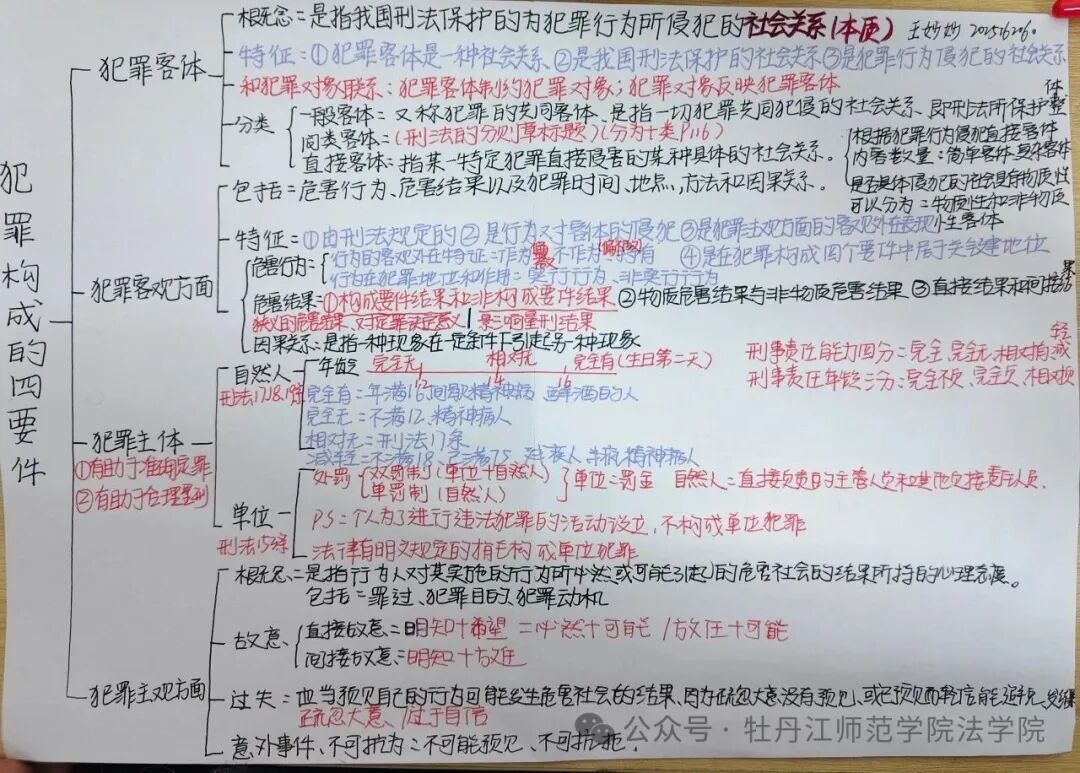 犯罪构成的四要件
犯罪客体
概念=是指我国刑法保护的为犯罪行为所侵犯的社会关系(本质)
王妙妙 2025.6.26.
特征:①犯罪客体是一种社会关系、②是我国刑法保护的社会关系③是犯罪行为侵犯的社会关系
和犯罪对象联系:犯罪客体制约犯罪对象;犯罪对象反映犯罪客体
分类
一般客体:又称犯罪的共同客体、是指一切犯罪共同犯侵的社会关系、即刑法所保护整体
同类客体:(刑法的分则章标题)(分为十类P116)
直接客体:指某一特定犯罪直接侵害的某种具体的社会关系。
根据犯罪行为侵犯直接客体
内容数量:简单客体,复杂客体
是否具体侵犯的社会具有物质性
可以分为=物质性和非物质
性客体
犯罪客观方面
包括=危害行为、危害结果以及犯罪时间、地点,方法和因果关系。
特征=①由刑法规定的②是行为对客体的侵犯③是犯罪主观方面的客观外在表现
④是在犯罪构成四个要件中居于关键地位
危害行为:
行为的客观外在特征=作为 不作为 持有
行为在犯罪地位和作用=实行行为、非实行行为
危害结果:①构成要件结果和非构成要件结果②物质危害结果与非物质危害结果③直接结果和间接结果
狭义的危害结果、对定罪决定意义 影响量刑结果
因果关系:是指一种现象在一定条件下引起另一种现象
犯罪主体
①有助于准确定罪
②有助于合理量刑
自然人
刑法17.18.19条
年龄 完全无 相对无 完全有(生日第二天)
12 14 16
刑事责任能力四分=完全、完全无、相对有、减轻
刑事责任年龄三分=完全不负、完全负、相对负
完全有=年满16,间歇精神病 醉酒的人
完全无=不满12,精神病人
相对无=刑法17条
减轻=不满18、已满75、残疾人、半疯精神病人
单位
刑法30条
处罚
双罚制(单位+自然人)
单罚制(自然人)
单位=罚金 自然人=直接负责的主管人员和其他直接责任人员.
PS=个人为了进行违法犯罪的活动设立、不构成单位犯罪
法律有明文规定的有才构成单位犯罪
犯罪主观方面
概念=是指行为人对其实施的行为所必然或可能引起的危害社会的结果所持的心理态度。
包括=罪过、犯罪目的、犯罪动机
故意、
直接故意=明知+希望 =必然+可能 /放任+可能
间接故意=明知+放任
过失=应当预见自己的行为可能发生危害社会的结果、因为疏忽大意没有预见、或已预见而轻信能避免、
疏忽大意、/过于自信
意外事件、不可抗力=不可能预见、不可抗拒.
公众号·牡丹江师范学院法学院